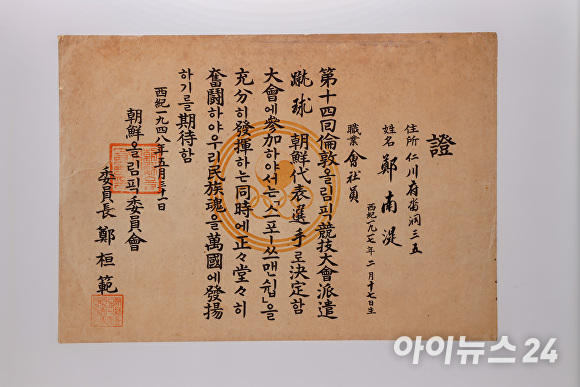 證
住所 仁川府畓洞三五
姓名 鄭南湜
西紀一九一七年 二月十七日生
職業 會社員
第十四回倫敦올림픽競技大會派遣
蹴球 朝鮮代表選手로決定함
大會에參加하야서는「스포-쓰맨쉽」을
充分히發揮하는同時에正々堂々히
奮鬪하야우리民族魂을萬國에發揚
하기를期待함
西紀一九四八年五月三十一日
朝鮮올림픽委員會
委員長 鄭桓範
아이뉴스24